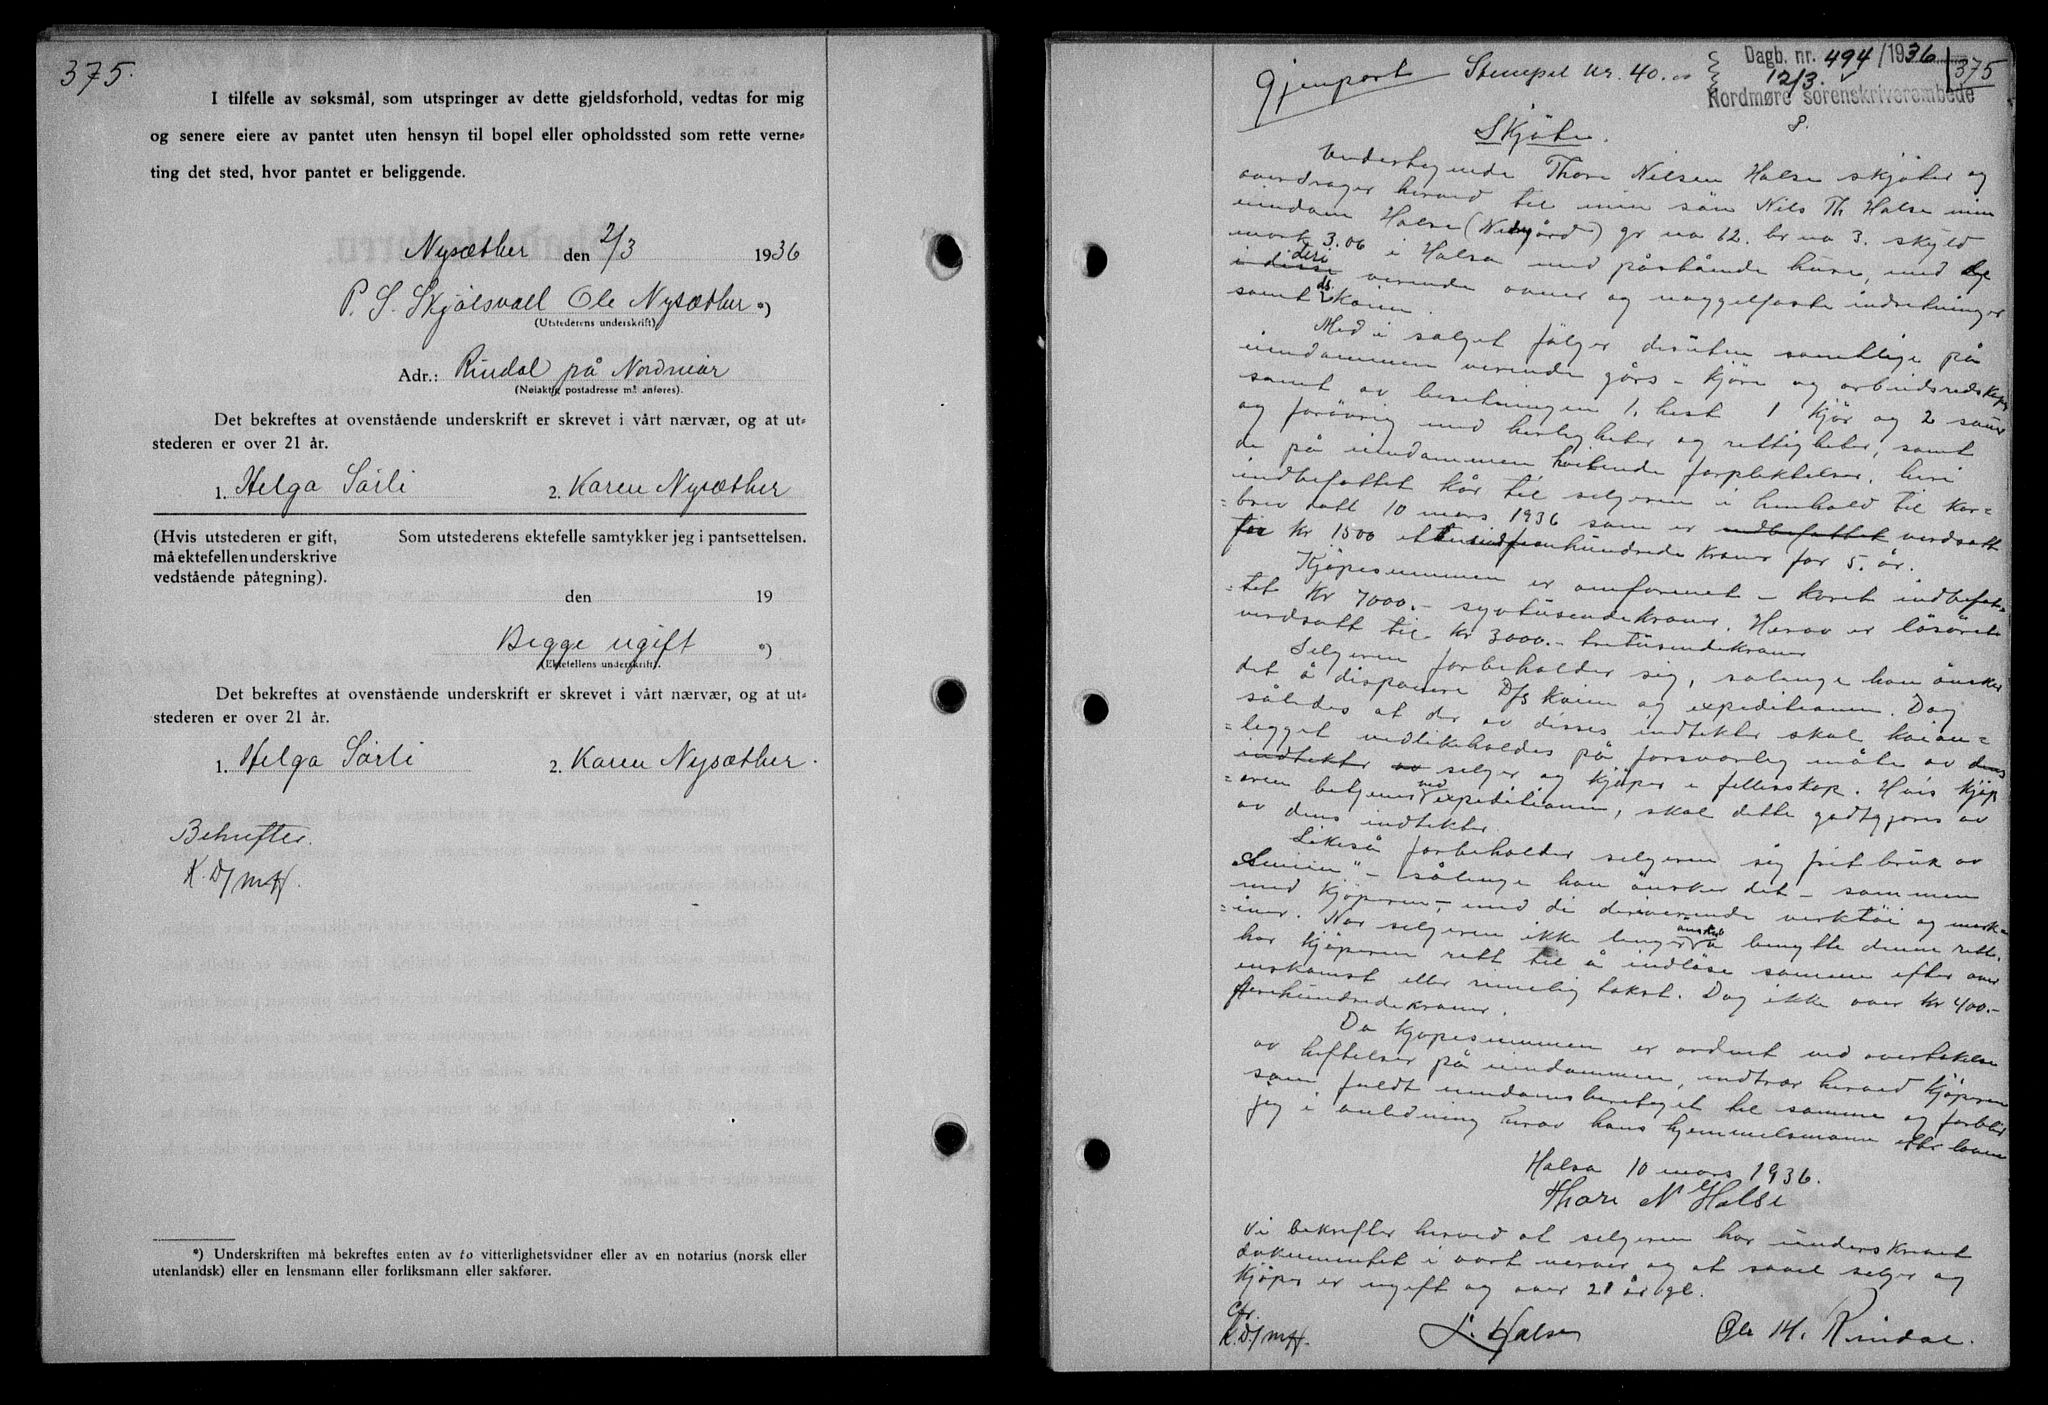 375.
I tilfelle av søksmål, som utspringer av dette gjeldsforhold, vedtas for mig
og senere eiere av pantet uten hensyn til bopel eller opholdssted som rette verne=
ting det sted, hvor pantet er beliggende.
Nysæther den 2/3 1936
P. S. Skjølsvoll Ole Nysæther *)
(Utstederens underskrift)
Adr.: Rindal på Nordmør
(Nøiaktig postadresse må anføres).
Det bekreftes at ovenstående underskrift er skrevet i vårt nærvær, og at ut=
stederen er over 21 år.
1. Helga Sørli 2. Karen Nysæther
(Hvis utstederen er gift,
må ektefellen underskrive
vedstående påtegning).
Som utstederens ektefelle samtykker jeg i pantsettelsen.
den 19
Begge ugift *)
(Ektefellens underskrift).
Det bekreftes at ovenstående underskrift er skrevet i vårt nærvær, og at ut=
stederen er over 21 år.
1. Helga Sørli 2. Karen Nysæther.
Bekrefter.
*) Underskriften må bekreftes enten av to vitterlighetsvidner eller av en notarius (norsk eller
utenlandsk) eller en lensmann eller forliksmann eller sakfører.
Gjenpart Stempel kr. 40.00
Dagb. nr. 494/1936 375
12/3.
Nordmøre sorenskriverembede
8.
Skjøte.
Undertegnede Thore Nilsen Halse skjøter og
overdrager herved til min søn Nils Th Halse min
eiendom Halse (Nedgård) gr no 62. br no 3. skyld
mark 3.06 i Halsa med påstående huse, med de
i disse deri værende ovner og naggelfaste indretninger
samt ds. kaien.
Med i salget følger desuten samtlige på
eiendommen værende gårs- kjøre og arbeidsredskaper
samt av besetningen 1. hest 1 kjør og 2 sauer
og forøvrig med herligheter og rettigheter, samt
de på eiendommen hvilende forpliktelser, heri
indbefattet kår til selgeren i henhold til kår=
brev datt 10 mars 1936 som er indbefattet verdsatt
for Kr 1500 ettusindfemhundrede kroner for 5. år.
Kjøpesummen er omforenet - kåret indbefat=
tet Kr 7000.- syvtusendekroner. Herav er løsøret
verdsatt til Kr 3000.- tretusendekroner
Selgeren forbeholder sig, salenge han ønsker
det å disponere D/S kaien og expeditionen. Dog
således at der av disses indtekter skal kaian=
legget vedlikeholdes på forsvarlig måte av dens
indtekter av selger og kjøper i fellesskap. Hvis kjøp
eren betjenes ved expeditionen, skal dette godtgjøres av
av dens indtekter
Likeså forbeholder selgeren sig frit bruk av
"Smien" - sålenge han ønsker det - sammen
med kjøperen, - med di deriværende verktøi og mask=
iner. Når selgeren ikke lenger ønsker å benytte denne rett
har kjøperen rett til å indløse samme efter over
enskomst eller rimelig takst. Dog ikke over kr 400.-
firehundredekroner.
Da kjøpesummen er ordnet ved overtakelse
av heftelser på eiendommen, indtrær herved kjøperen
som fuldt eiendomsberetiget til samme og forblir
jeg i anledning herav hans hjemmelsmann efter loven
Halsa 10 mars 1936.
Thore N Halse
Vi bekrefter herved at selgeren har underskrevet
dokumentet i vort nærvær og at såvel selger og
kjøper er ugift og over 21 år gl.
Halsen Ole H. Rindal.